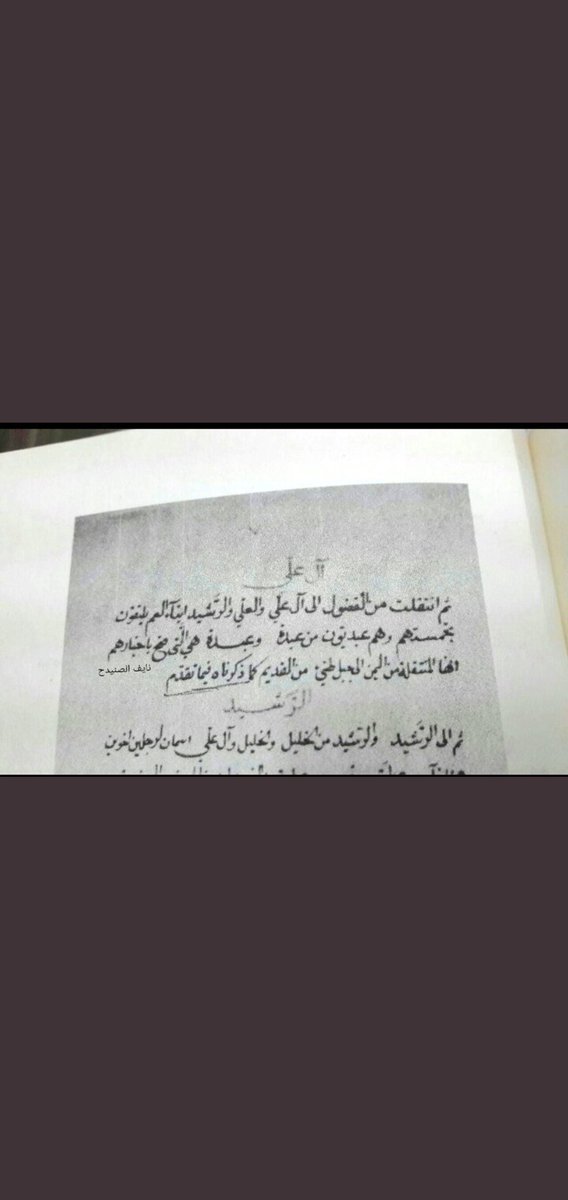 آل علي
ثم انتقلت من الفضول الى آل علي والعلي والرشيد ابنآء العم يلتقون
بخمستهم وهم عبديون من عبدة وعبدة هي التي صح باخبارهم
انها المتنقلة من اليمن الى جبل طيئ من القديم كما ذكرناه فيما تقدم
نايف الصنيدح
الرشيد
ثم الى الرشيد والرشيد من الخليل والخليل وآل علي اسمان لرجلين اخوين